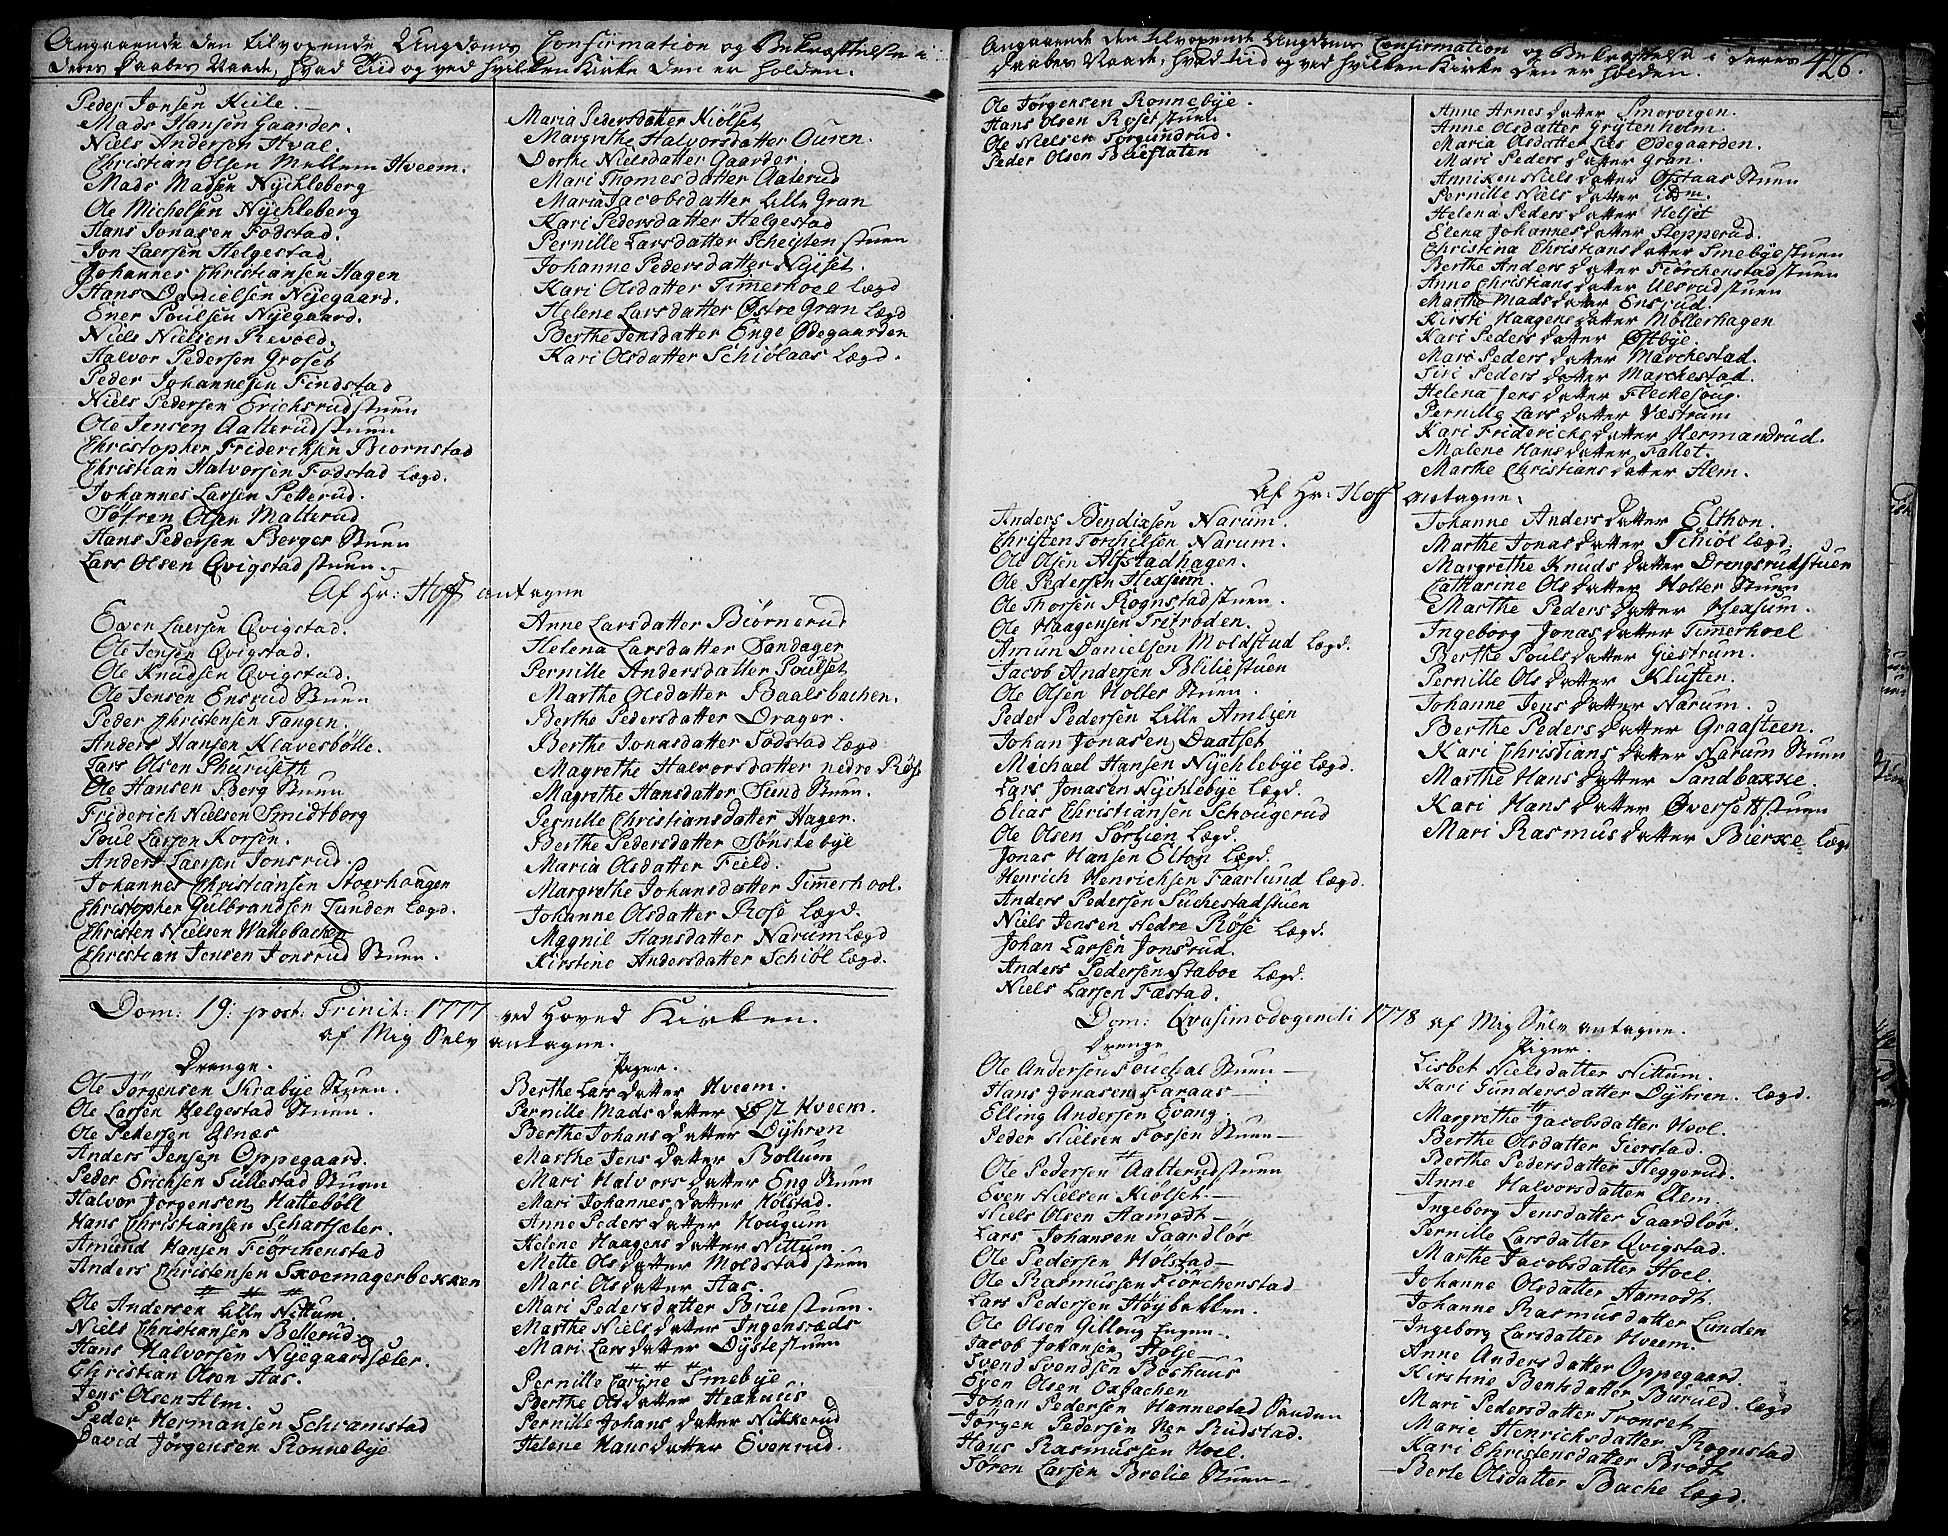 Angaaende den tilvoxende Ungdoms Confirmation og Bekræftelse i
deres Daabes Naade, hvad Tiid og ved hvilken Kirke den er holden.
Peder Jonsen Kiile.
Mads Hansen Gaarder.
Niels Andersen Hval.
Christian Olsen Mellem Hveem.
Mads Madsen Nychleberg
Ole Michelsen Nychleberg
Hans Jonasen Fodstad.
Jon Laersen Helgestad
Johannes Christiansen Hagen
Hans Danielsen Nyegaard.
Ener Poulsen Nyegaard.
Niels Nielsen Revold.
Halvor Pedersen Groset
Peder Johannesen Findstad
Niels Pedersen Erichsrudstuen
Ole Jensen Aalterudstuen
Christopher Fridericksen Biornstad
Christian Halvorsen Fodstad Lægd.
Johannes Larsen Petterud.
Søfren Olsen Malterud
Hans Pedersen Berger Stuen
Lars Olsen Qvigstad stuen.
Maria Pedersdatter Kiølset
Margrethe Halvorsdatter Ouren.
Dorthe Nielsdatter Gaarder.
Mari Thomesdatter Aalerud
Maria Jacobsdatter Lille Gran
Kari Pedersdatter Helgestad
Pernille Larsdatter Scheisten stuen
Johanne Pedersdatter Nyset.
Kari Olsdatter Timerhoel Lægd
Helene Larsdatter Østre Gran Lægd
Berthe Jensdatter Enge Ødegaarden
Kari Olsdatter Schiølaas Lægd.
Af Hr: Hoff antagne
Even Laersen Qvigstad.
Ole Jensen Qvigstad.
Ole Knudsen Qvigstad.
Ole Jensen Ensrud Stuen
Peder Christensen Tangen.
Anders Hansen Klavesbølle.
Lars Olsen Thuruseth
Ole Hansen Berg Stuen
Friderich Nielsen Smidtborg
Poul Larsen Korsen.
Anders Laersen Jonsrud.
Johannes Christiansen Stoerhaugen
Christopher Gulbrandsen Lunden Lægd.
Christen Nielsen Hallebachen
Christian Jensen Jonsrud Stuen.
Anne Larsdatter Biørnerud
Helena Larsdatter Sandager
Pernille Andersdatter Poulset
Marthe Olsdatter Baalsbachen.
Berthe Pedersdatter Drager.
Berthe Jonasdatter Sodstad Lægd
Magrethe Halvorsdatter nedre Røse
Magrethe Hansdatter Sund Stuen.
Pernille Christiansdatter Hager.
Berthe Pedersdatter Sønstebye
Maria Olsdatter Field.
Margrethe Johansdatter Timerhool.
Johanne Olsdatter Rose Lægd.
Magnil Hansdatter Narum Lægd
Kirstine Andersdatter Schiøl Lægd.
Dom: 19: post: Trinit: 1777 ved Hoved Kirken.
af Mig Selv antagne.
Drenge.
Ole Jørgensen Krabye Stuen.
Ole Larsen Helgestad Stuen.
Ole Pedersen Ulnæs
Anders Jensen Oppegaard.
Peder Erichsen Sullestad Stuen
Halvor Jørgensen Hattebøll
Hans Christiansen Schartsæter.
Amund Hansen Fiørchenstad
Anders Christensen Skoemagerbekken
Ole Andersen Lille Nittum.
Niels Christiansen Bellerud.
Hans Halvorsen Nyegaardsæter.
Christian Olsen Aas.
Jens Olsen Alm.
Peder Hermansen Schramstad
David Jørgensen Ronnebye
Piger.
Berthe Lars datter Hveem.
Pernille Mads datter Øst Hveem.
Berthe Johans datter Dyhren
Marthe Jens datter Bollum
Mari Halvors datter Eng Stuen
Mari Johannes datter Hølstad.
Anne Peders datter Hougum
Helene Haagens datter Nittum.
Mette Ols datter Moldstad stuen
Mari Ols datter Aas.
Mari Peders datter Brue stuen.
Marthe Niels datter Ingensrads
Mari Lars datter Dystestuen
Pernille Carine Smebye.
Berthe Ols datter Hexhuus
Pernille Johans datter Nikkerud
Helene Hans datter Evenrud.
Angaaende den tilvoxende Ungdoms Confirmation og Bekræftelse i deres
Daabes Naade, hvad tiid og ved hvilken Kirke den er holden.
426.
Ole Jørgensen Ronnebye.
Hans Olsen Roset stuen
Ole Nielsen Torgundrud.
Peder Olsen Brieflaten
Anne Arnes datter Smorvigen
Anne Olsdatter Grytenholm.
Maria Olsdatter Lies Ødegaarden.
Mari Peders datter Gran.
Anniken Niels datter Ofstaas Stuen
Pernille Niels datter idm.
Helena Peders datter Helset
Elena Johannes datter Stepperud.
Christina Christians datter Smebyestuen
Berthe Anders datter Fiørchenstadstuen
Anne Christians datter Ulsrud stuen
Marthe Mads datter Ensrud
Kirsti Haagens datter Møllerhagen
Kari Peders datter Østbye.
Mari Peders datter Marchestad.
Siri Peders datter Marchestad.
Helena Jens datter Fleckesoug.
Pernille Lars datter Væstrum
Kari Friderichs datter Hermandrud.
Malene Hans datter Fallet.
Marthe Christians datter Alm.
Af Hr: Hoff antagne.
Anders Bendixsen Narum.
Christen Torchilsen Narum.
Ole Olsen Alfstadhagen.
Ole Pedersen Hexsum.
Ole Thorsen Rognstadstuen.
Ole Haagensen Fritroden.
Amun Danielsen Moldstud Lægd.
Jacob Andersen Bliliestuen
Ole Olsen Holter Stuen.
Peder Pedersen Lille Amlien
Johan Jonasen Daatset
Michael Hansen Nychlebye Lægd.
Lars Jonasen Nychlebye Lægd.
Elias Christiansen Schougerud
Ole Olsen Sørlien Lægd.
Jonas Hansen Elton Lægd.
Henrich Henrichsen Faarlund Lægd.
Anders Pedersen Suchestadstuen
Niels Jensen Nedre Røse Lægd.
Johan Larsen Jonsrud
Anders Pedersen Staboe Lægd.
Niels Larsen Fæstad.
Johanne Anders datter Elthon.
Marthe Jonas datter Schiøl Lægd.
Margrethe Knuds datter Drengsrudstuen
Catharine Ols datter Holter Stuen
Marthe Peders datter Hexsum.
Ingeborg Jonas datter Timerhoel
Berthe Pouls datter Giestrum.
Pernille Ols datter Kluften.
Johanne Jens datter Narum.
Berthe Peders datter Graasteen.
Kari Christians datter Narum Stuen
Marthe Hans datter Sandbakke.
Kari Hans datter Øversettstuen
Mari Rasmus datter Bierke Lægd
Dom: Qvasimodogeniti 1778 af Mig Selv antagne.
Drenge
Ole Andersen Fouchal Stuen
Hans Jonasen Faraas
Elling Andersen Evang.
Peder Nielsen Fossen Stuen
Ole Pedersen Aalterudstuen
Even Nielsen Kiølset.
Niels Olsen Aamodt
Lars Johansen Gaardløs
Ole Pedersen Hølstad
Ole Rasmussen Fiørchenstad
Lars Pedersen Høybakken.
Ole Olsen Gilloug Engen.
Jacob Johansen Holje
Svend Svendsen Boshuus
Even Olsen Oxbachen
Johan Pedersen Hannestad Sanden
Jørgen Pedersen Ner Rudstad.
Hans Rasmussen Hoel.
Søren Larsen Brelie Stuen
Piger.
Lisbet Nielsdatter Nittum.
Kari Gundersdatter Dyhren. Lægd.
Margrethe Jacobsdatter Hvol.
Berthe Olsdatter Gierstad.
Berthe Pedersdatter Heggerud.
Anne Halvorsdatter Alm.
Ingeborg Jensdatter Gaardløs.
Pernille Larsdatter Qvigstad.
Marthe Jacobsdatter Hoel.
Johanne Olsdatter Aamodt.
Johanne Rasmusdatter Lunden
Ingeborg Larsdatter Hveem.
Anne Andersdatter Oppegaard.
Kirstine Bentsdatter Buruld. Lægd
Mari Pedersdatter Tronset.
Marie Henrichsdatter Rognstad
Kari Christensdatter Brodt
Berte Olsdatter Bache Lægd.